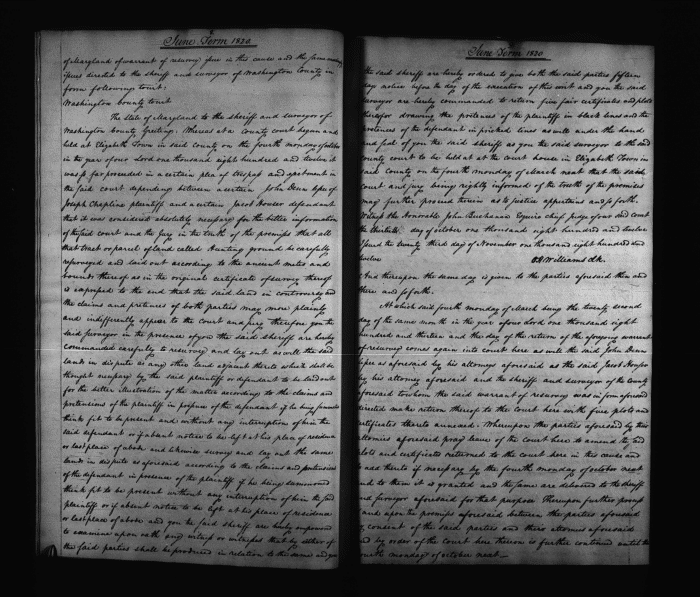 June Term 1820
of Maryland of warrant of resurvey issue in this cause and the same
issues directed to the sheriff and surveyor of Washington County in
form following towit:
Washington County towit
The State of Maryland to the sheriff and surveyor of
Washington County Greeting. Whereas at a County court began and
held at Elizabeth Town in said county on the fourth monday of october
in the year of our Lord one thousand eight hundred and twelve it
was so far proceeded in a certain plea of trespass and ejectment in
the said court depending between a certain John Denn lessee of
Joseph Chapline plaintiff and a certain Jacob Houser defendant
that it was considered absolutely necessary for the better information
of the said court and the jury in the truth of the premises that all
that tract or parcel of land called Hunting ground be carefully
resurveyed and laid out according to the ancient metes and
bounds thereof as in the original certificate of survey thereof
is expressed to the end that the said land in controversy and
the claims and pretences of both parties may more plainly
and indifferently appear to the court and jury therefore you the
said surveyor in the presence of you the said sheriff are hereby
commanded carefully to resurvey and lay out as well the said
lands in dispute as any other land adjacent thereto which shall be
thought necessary by the said plaintiff or defendant to be laid out
for the better illustration of the matter according to the claims and
pretensions of the plaintiff in presence of the defendant if he being summoned
think fit to be present and without any interruption of him the
said defendant or if absent notice to be left at his place of residence
or last place of abode and likewise survey and lay out the same
lands in dispute as aforesaid according to the claims and pretensions
of the defendant in presence of the plaintiff if he being summoned
think fit to be present without any interruption of him the said
plaintiff or if absent notice to be left at his place of residence
or last place of abode and you the said sheriff are hereby empowered
to examine upon oath any witness or witnesses that by either of
the said parties shall be produced in relation to the same and you
June Term 1820
the said sheriff are hereby ordered to give both the said parties fifteen
days notice before the day of the execution of this writ and you the said
surveyor are hereby commanded to return five fair certificates and plots
thereof drawing the pretences of the plaintiff in black lines and the
pretences of the defendant in pricked lines as well under the hand
and seal of you the said sheriff as you the said surveyor to the said
county court to be held at the court house in Elizabeth Town in
said county on the fourth monday of March next that the said
court and jury being rightly informed of the truth of the premises
may further proceed therein as to justice appertains and so forth.
Witness the Honorable John Buchanan Esquire chief judge of our said court
the day of october one thousand eight hundred and twelve
Issued the twenty third day of November one thousand eight hundred and
twelve O H Williams clk.
And thereupon the same day is given to the parties aforesaid then and
there and so forth.
At which said fourth monday of March being the twenty second
day of the same month in the year of our Lord one thousand eight
hundred and thirteen and the day of the return of the aforegoing warrant
of resurvey comes again into court here as well the said John Denn
lessee as aforesaid by his attorney aforesaid as the said Jacob Houser
by his attorney aforesaid and the sheriff and surveyor of the county
aforesaid to whom the said warrant of resurvey was in form aforesaid
directed make return thereof to the court here with five plots and
certificates thereto annexed. Whereupon the parties aforesaid by their
attornies aforesaid pray leave of the court here to amend the
plots and certificates returned to the court here in this cause and
to add thereto if necessary by the fourth monday of october next
and to them it is granted and the same are delivered to the sheriff
and surveyor aforesaid for that purpose Thereupon further process
and upon the premises aforesaid between the parties aforesaid
by consent of the said parties and their attornies aforesaid
and by order of the court here thereon is further continued until the
fourth monday of october next